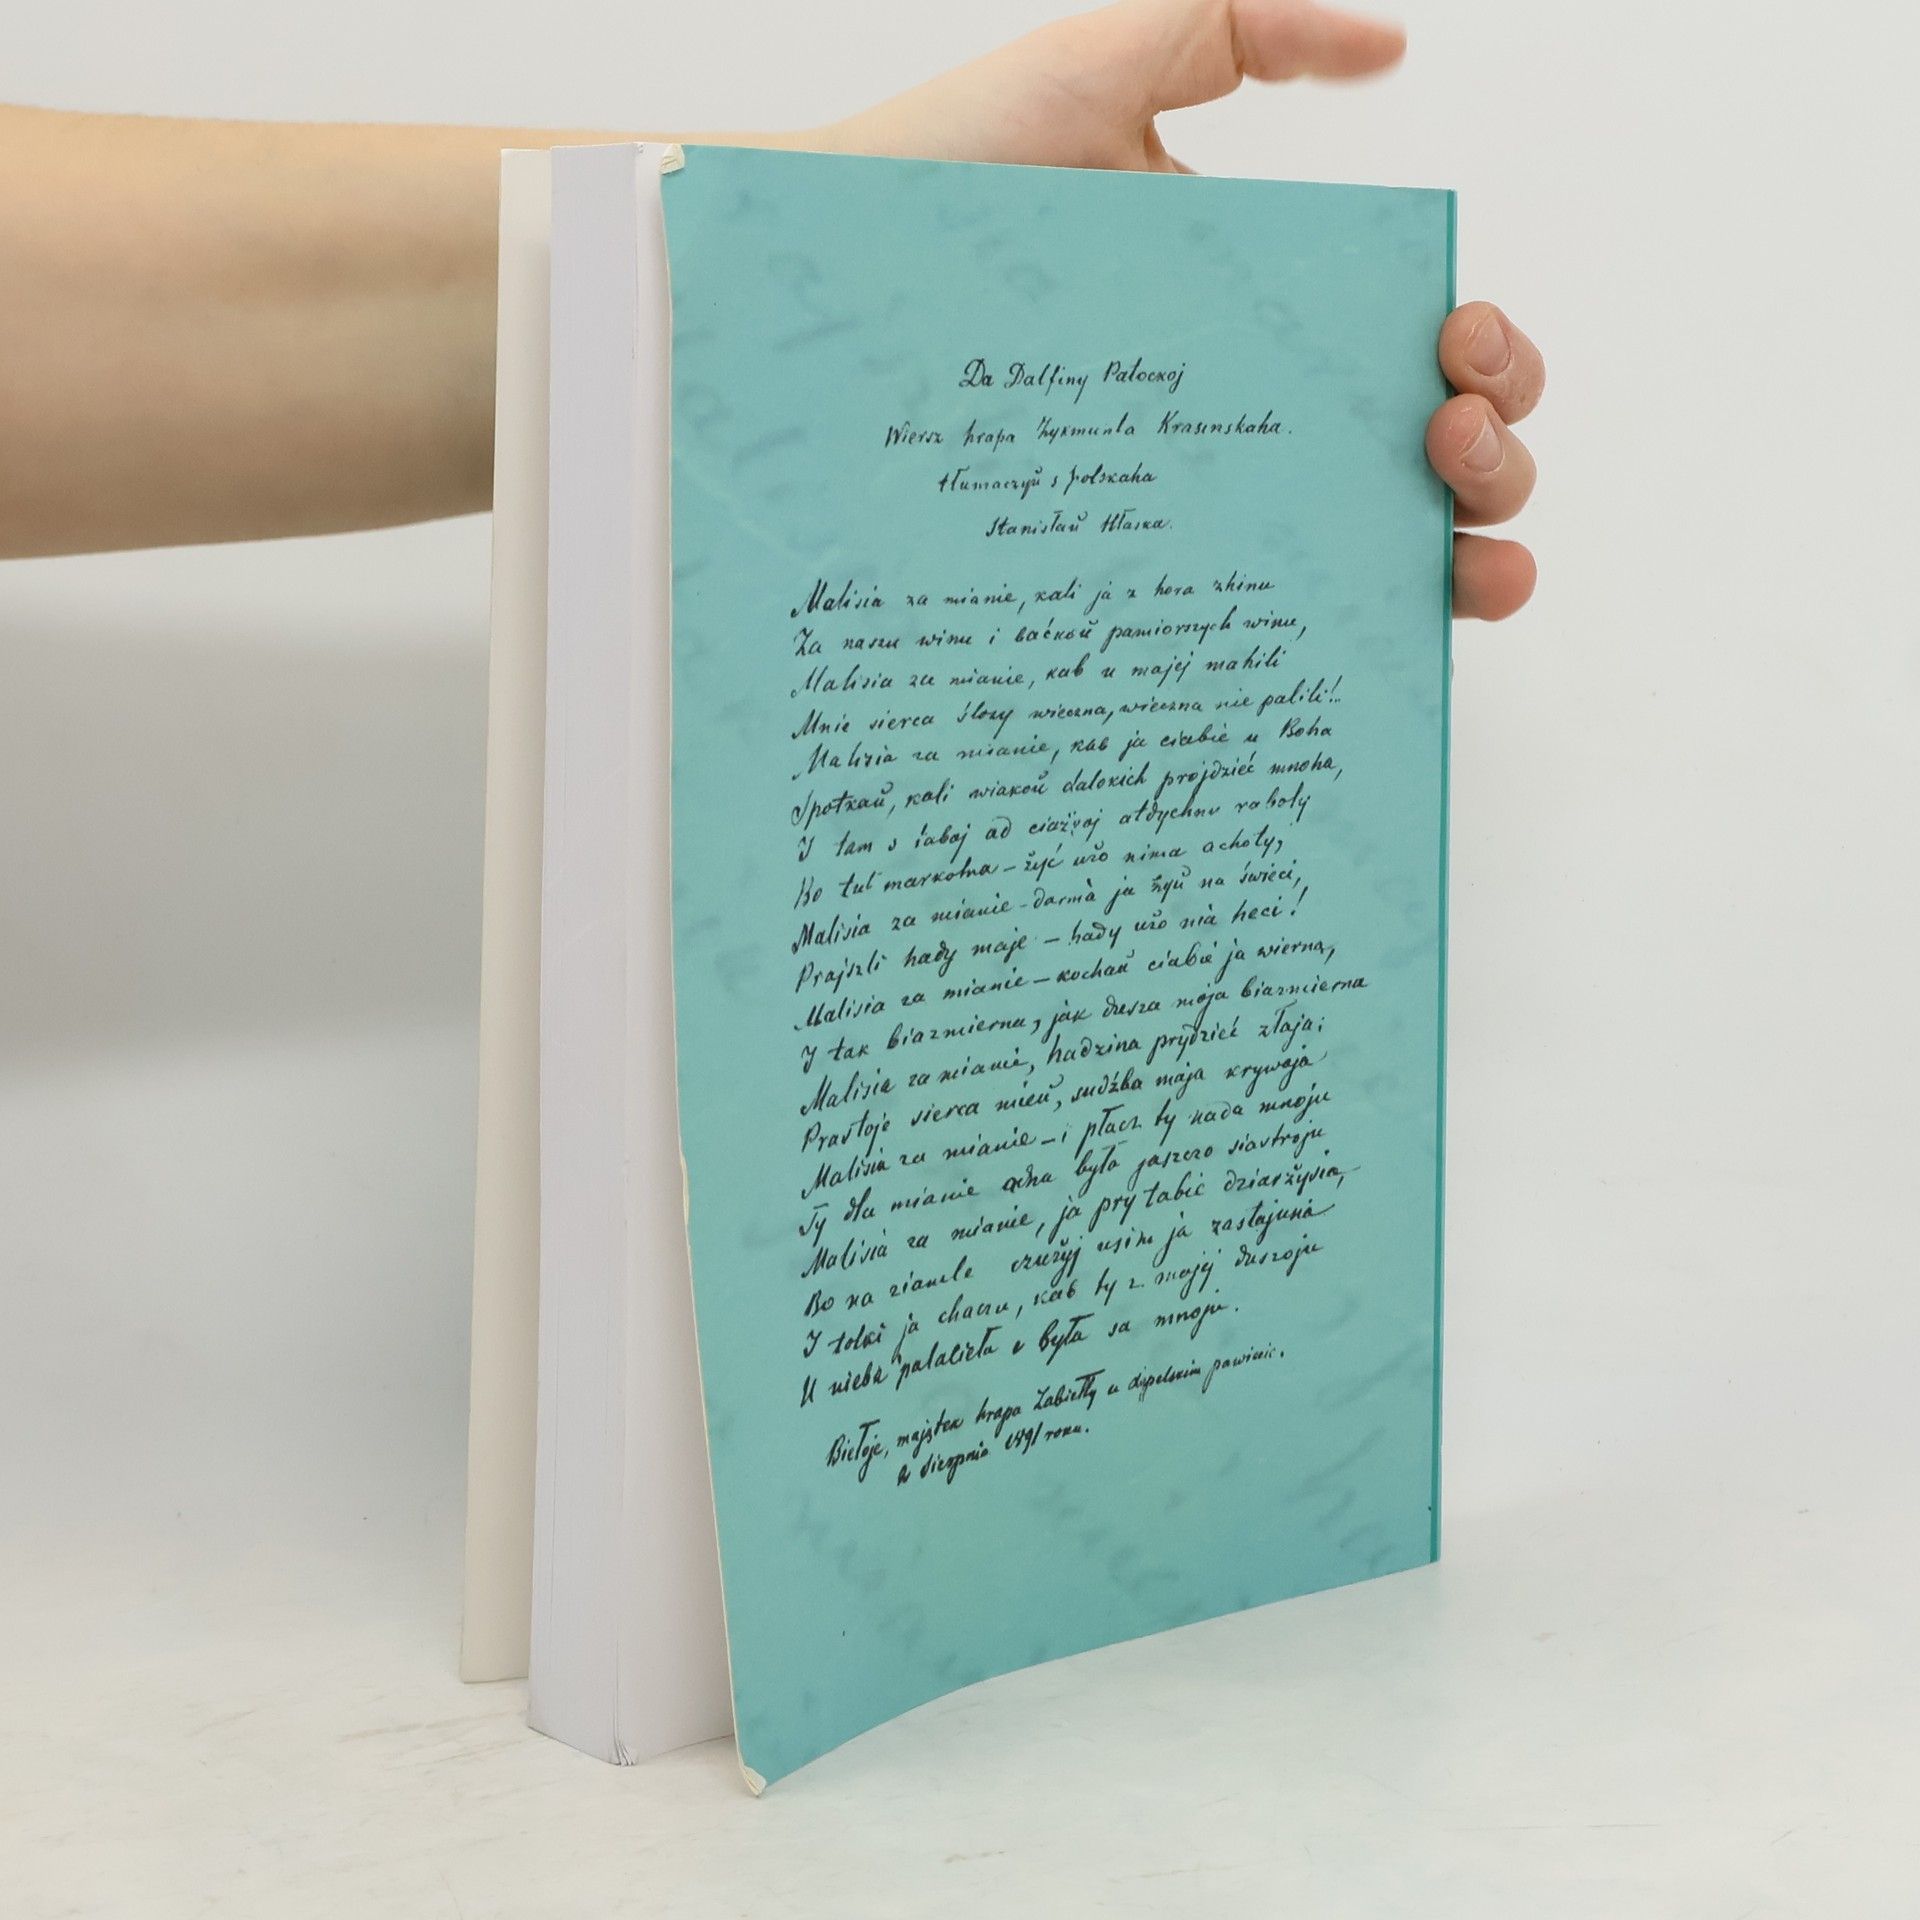 Da Dalfiny Patockoj
Wiersz hrapa Zykmunta Krasinskaha.
tłumaczyŭ s polskaha
Stanisłaŭ Hłaska.
Malisia za mianie, kali ja z hora zhinu
Za naszu winu i baćkoŭ pamiorszych winu,
Malisia za mianie, kab u majej mahili
Mnie sierca ślozy wieczna, wieczna nie palili!..
Malisia za mianie, kab ja ciabie u Boha
Spotkaŭ, kali wiakoŭ dalokich projdzieć mnoha,
I tam s taboj ad ciażkoj atdychnu raboty
Bo tut markotna – żyć użo nima achoty,
Malisia za mianie – darma ja żyŭ na świeci,
Prajszli hady maje – hady użo nia heci!
Malisia za mianie – kochaŭ ciabie ja wierna,
I tak biazmierna, jak dusza moja biazmierna
Malisia za mianie, hadzina prydzieć złaja;
Prastoje sierca mieŭ, sudźba maja krywaja
Malisia za mianie – i płacz ty nada mnoju
Ty dla mianie adna była jaszczo siastroju
Malisia za mianie, ja pry tabie dziarżusia,
Bo na ziamle czużyj usim ja zastajusia
I tolki ja chaczu, kab ty z majej duszoju
U nieba palacieła i była sa mnoju.
Biełoje, majątek hrapa Zabiełły u lepelskim pawiecie.
2 sierpnia 1891 roku.